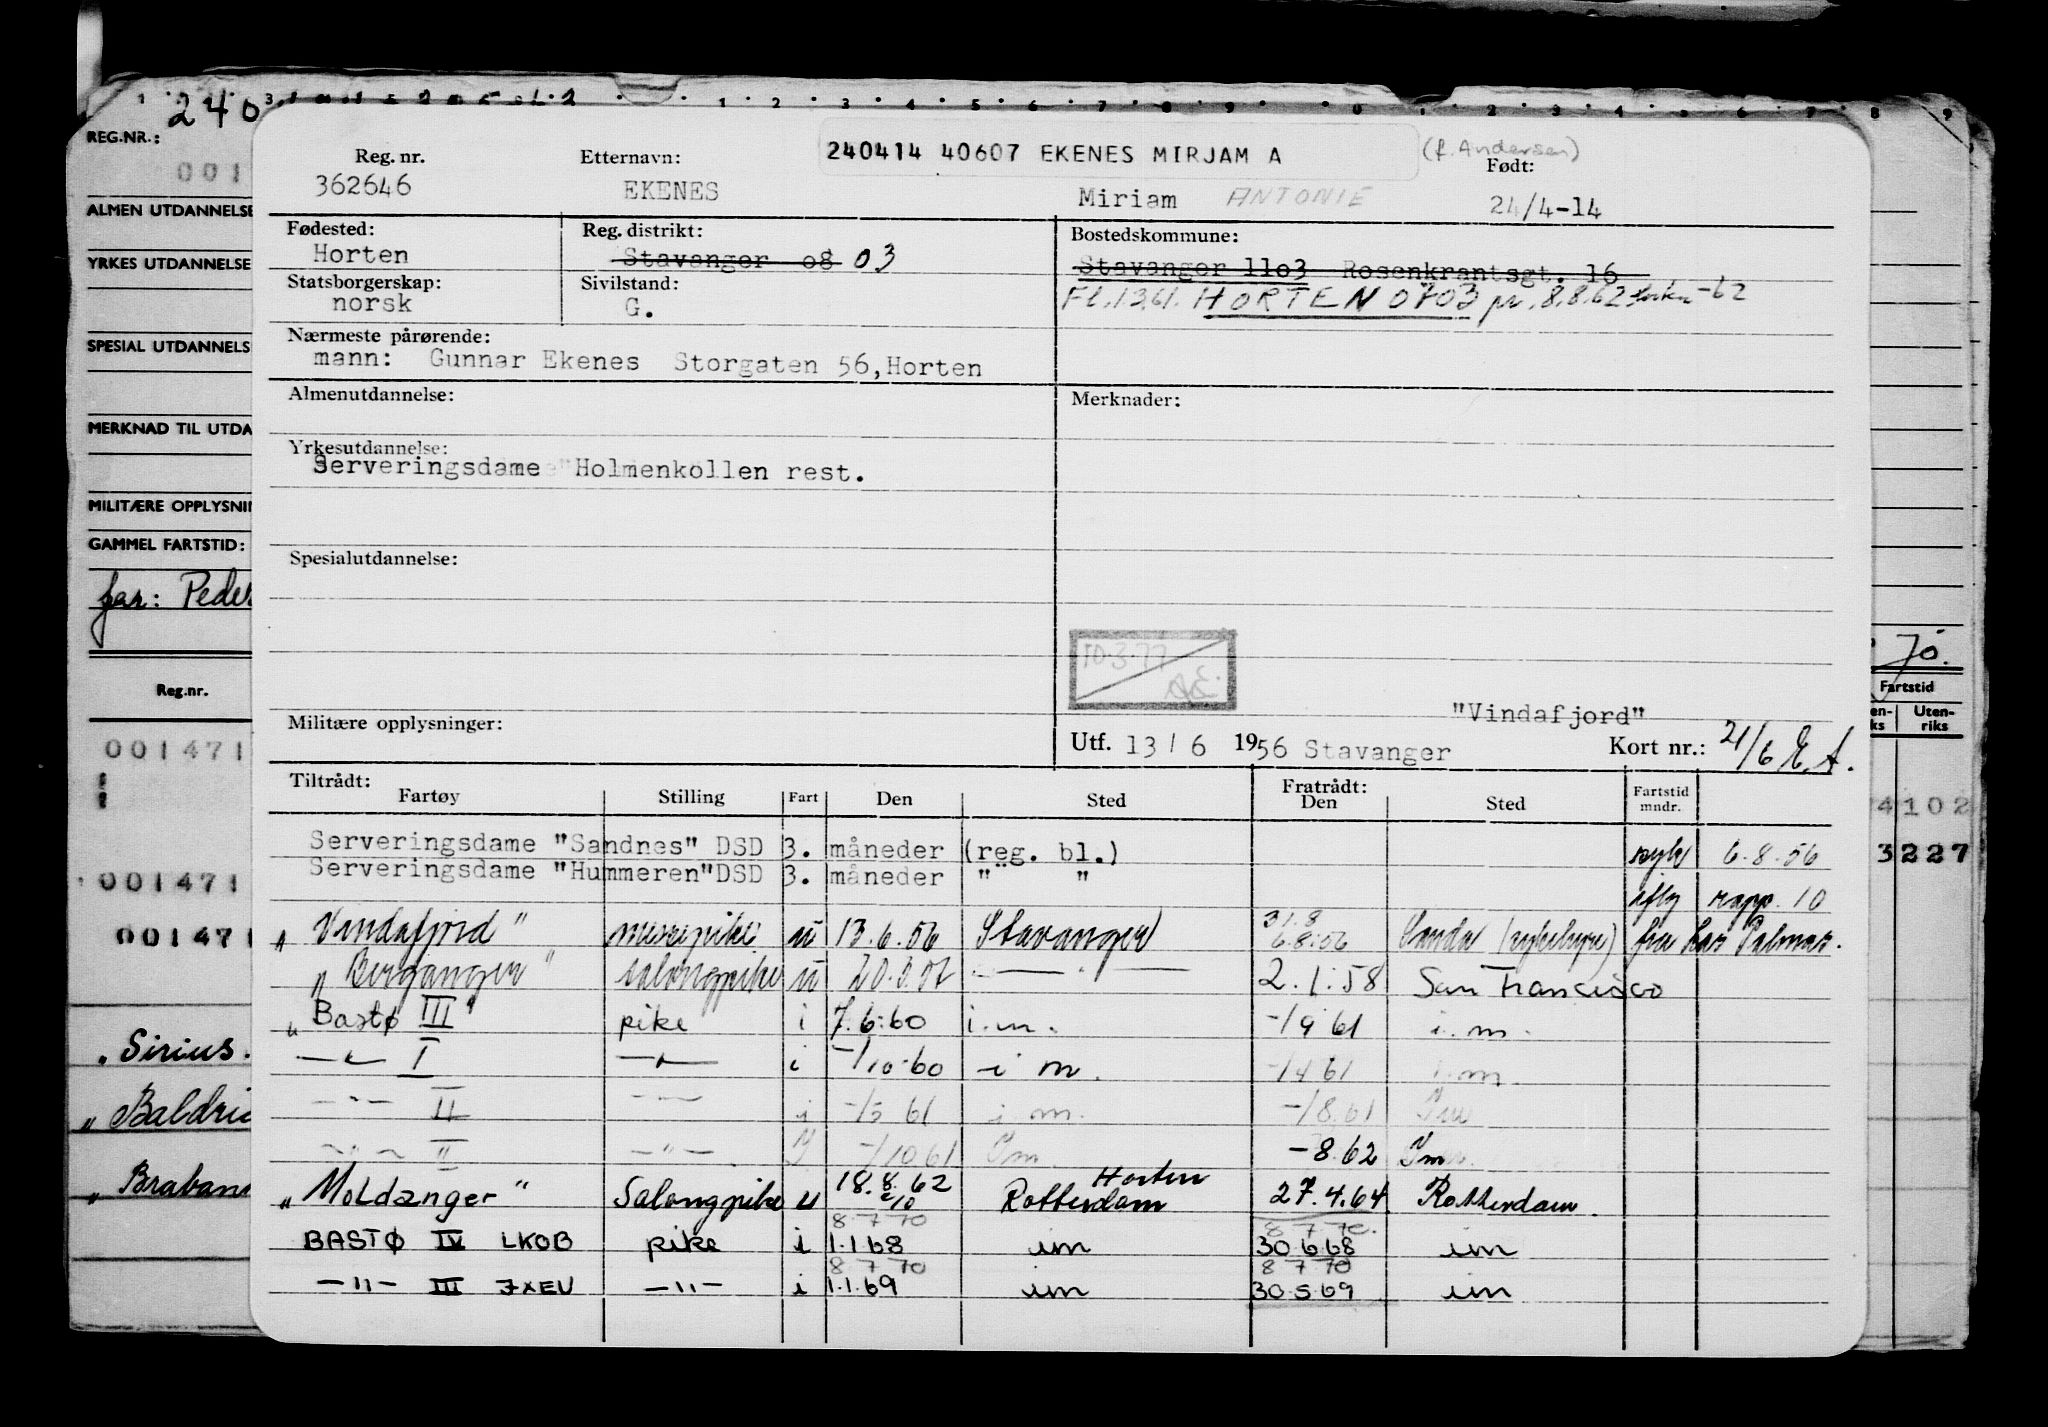 240
REG.NR.:
001
ALMEN UTDANNELSE
YRKES UTDANNELSE
SPESIAL UTDANNELS
MERKNAD TIL UTDA
MILITÆRE OPPLYSNI
GAMMEL FARTSTID:
far: Peder
Reg.nr.
001471
001471
001471
„Sirius.
„Baldric
„Braban
Reg. nr.
362646
Etternavn:
EKENES
240414 40607 EKENES MIRJAM A
(f. Andersen)
Miriam ANTONIE
Født:
24/4-14
Fødested:
Horten
Reg. distrikt:
Stavanger o8 03
Bostedskommune:
Stavanger 11o3 Rosenkrantsgt. 16
Fl. 1.3.61. HORTEN 0703 pr. 8.8.62 -62
Statsborgerskap:
norsk
Sivilstand:
G.
Nærmeste pårørende:
mann: Gunnar Ekenes Storgaten 56, Horten
Almenutdannelse:
Merknader:
Yrkesutdannelse:
Serveringsdame "Holmenkollen rest.
Spesialutdannelse:
10.3.77
Militære opplysninger:
"Vindafjord"
Utf. 13/6 1956 Stavanger
Kort nr.: 21/6 E.A.
Jo.
Fartstid
Uten-
riks
4102
3227
Tiltrådt:
Fartøy Stilling Fart Den Sted Fratrådt: Den Sted Fartstid mndr.
Serveringsdame "Sandnes" DSD 3. måneder (reg. bl.) syk 6.8.56
Serveringsdame "Hummeren"DSD 3. måneder " " iflg rapp. 10
„Vindafjord" messepike u 13.6.56 Stavanger 31.8 6.8.56 fra Las Palmas.
„Berganger" salongpike u 2.1.58 San Francisco
„Bastø III" pike i 7.6.60 i.m. -/9 61 i.m.
—"— I —"— i -/10-60 i m. -/4 61 i.m.
—"— II —"— i 61 i m. -/8.61 Im
—"— II —"— I -/10 61 Im -8.62 Im.
„Moldanger" Salongpike u 18.8.62 Horten Rotterdam 27.4.64 Rotterdam.
8 7 70 8 7 70.
BASTØ IV LKOB pike i 1.1.68 im 30.6.68 im
8 7 70 8 7 70
—"— III JXEU —"— i 1.1.69 im 30.5.69 im